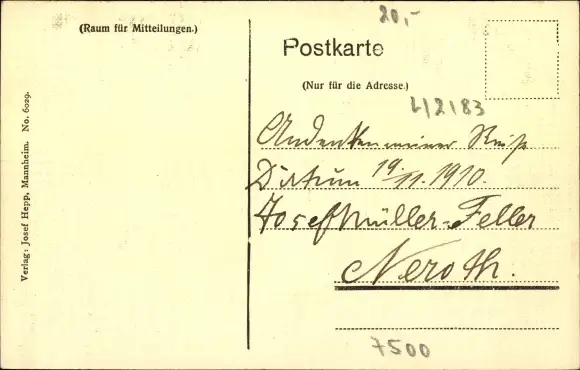 20,-
(Raum für Mitteilungen.)
Postkarte
(Nur für die Adresse.)
4/2183
Andenken meiner Reise
Datum 19./11. 1910.
Josef Müller-Feller
Neroth.
7500
Verlag: Josef Hepp, Mannheim. No. 6029.